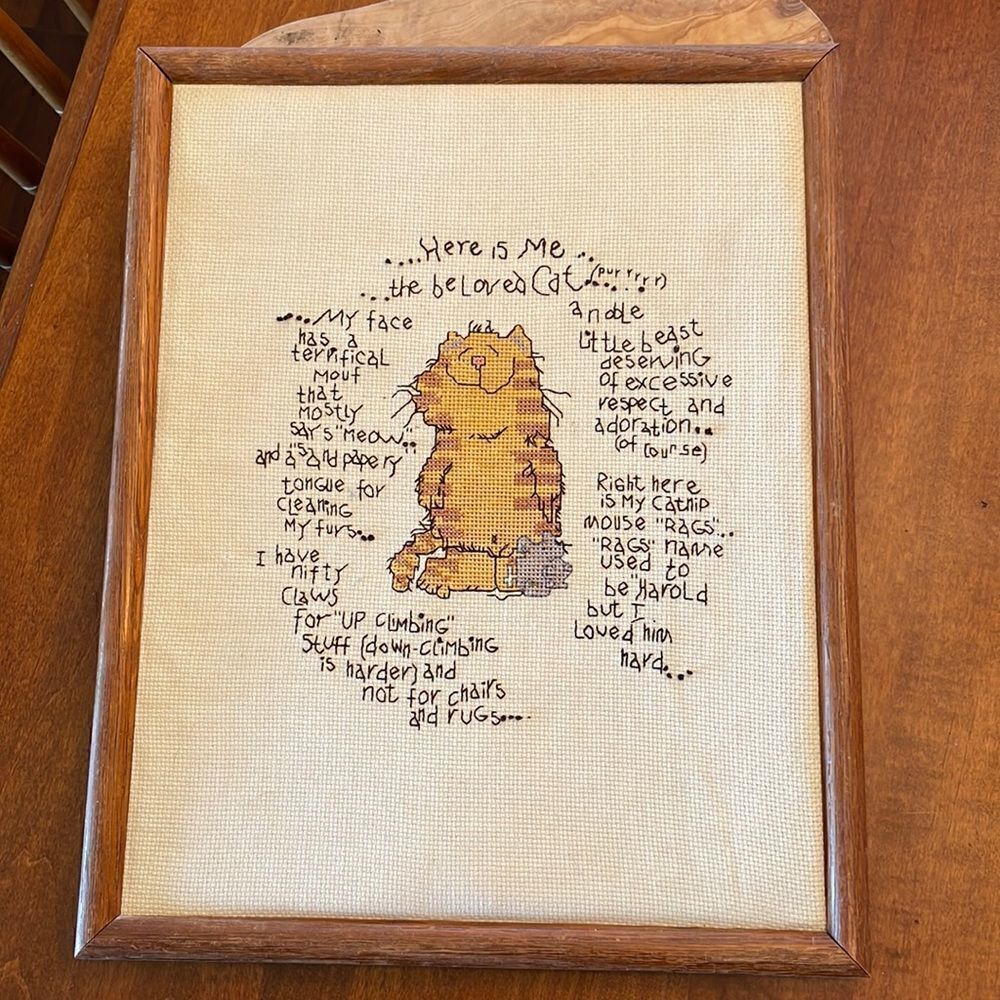 ....Here is Me ...
...the beloved Cat......(purrrrr)
....My face
has a
terrifical
mouf
that
mostly
says "meow"..
and a "sandpapery"
tongue for
cleaning
My furs...
I have
nifty
claws
for "UP climbing"
stuff (down-climbing
is harder) and
not for chairs
and rugs....
a noble
little beast
deserving
of excessive
respect and
adoration...
(of course)
Right here
is My Catnip
mouse "RAGS"...
"RAGS" name
used to
be "Harold
but I
Loved him
hard.....